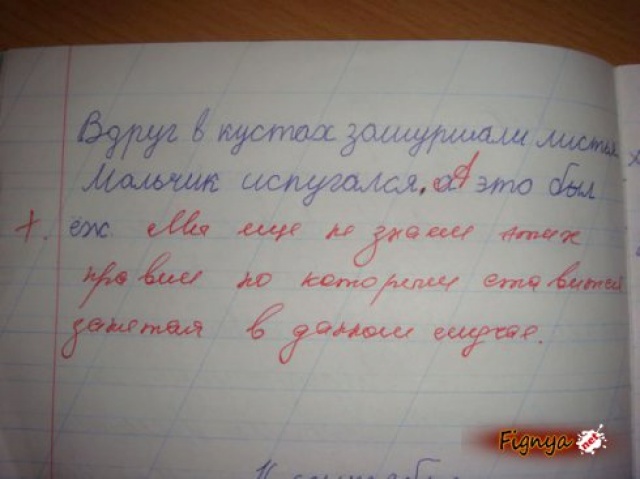 Вдруг в кустах зашуршали листья
Мальчик испугался. а А это был
ёж. Мы еще не знаем этих
правил по которым ставится
запятая в данном случае.
Fignya.net